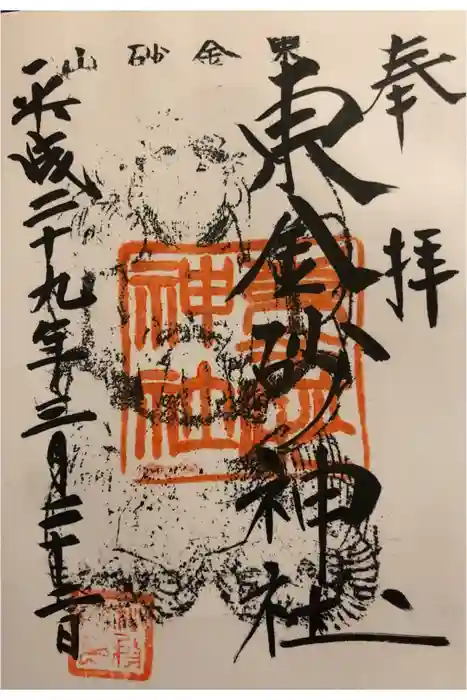 山砂金東
奉拝
東金砂神社
平成二十九年三月二十二日